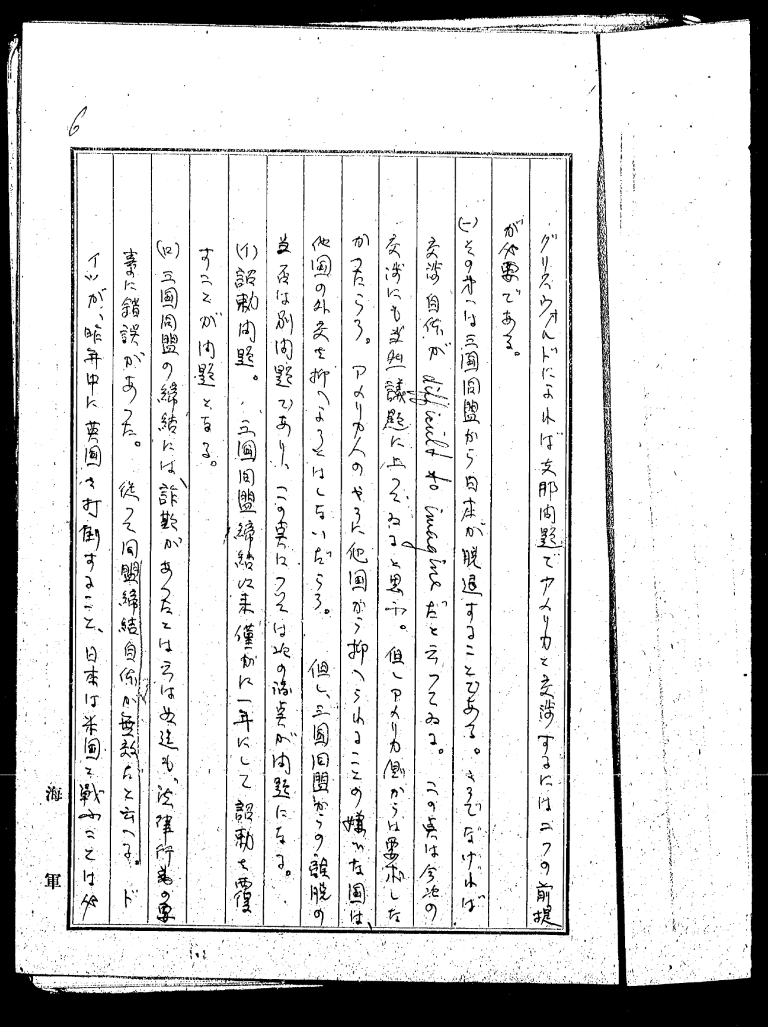 6
グリスウォルドによれば支那問題でアメリカと交渉するには二つの前提
が必要である。
(一)その第一は三国同盟から日本が脱退することである。さうでなければ
交渉自体が difficult to imagine だと云つてゐる。この点は今次の
交渉にも当然議題に上つてゐると思ふ。但しアメリカ側からは要求しな
かつたらう。アメリカ人のやうに他国から抑へられることの嫌ひな国は、
他国の外交を抑へようとはしないだらう。但し、三国同盟からの離脱の
当否は別問題であり、この点については次の諸点が問題になる。
(イ)詔勅問題。三国同盟締結以来僅かに一年にして詔勅を覆
すことが問題となる。
(ロ)三国同盟の締結には、詐欺があつたとは云はぬ迄も、法律行為の要
素に錯誤があつた。従つて同盟締結自体が無効だと云へる。ド
イツが、昨年中に英国を打倒すること、日本は米国と戦ふことは必
海軍